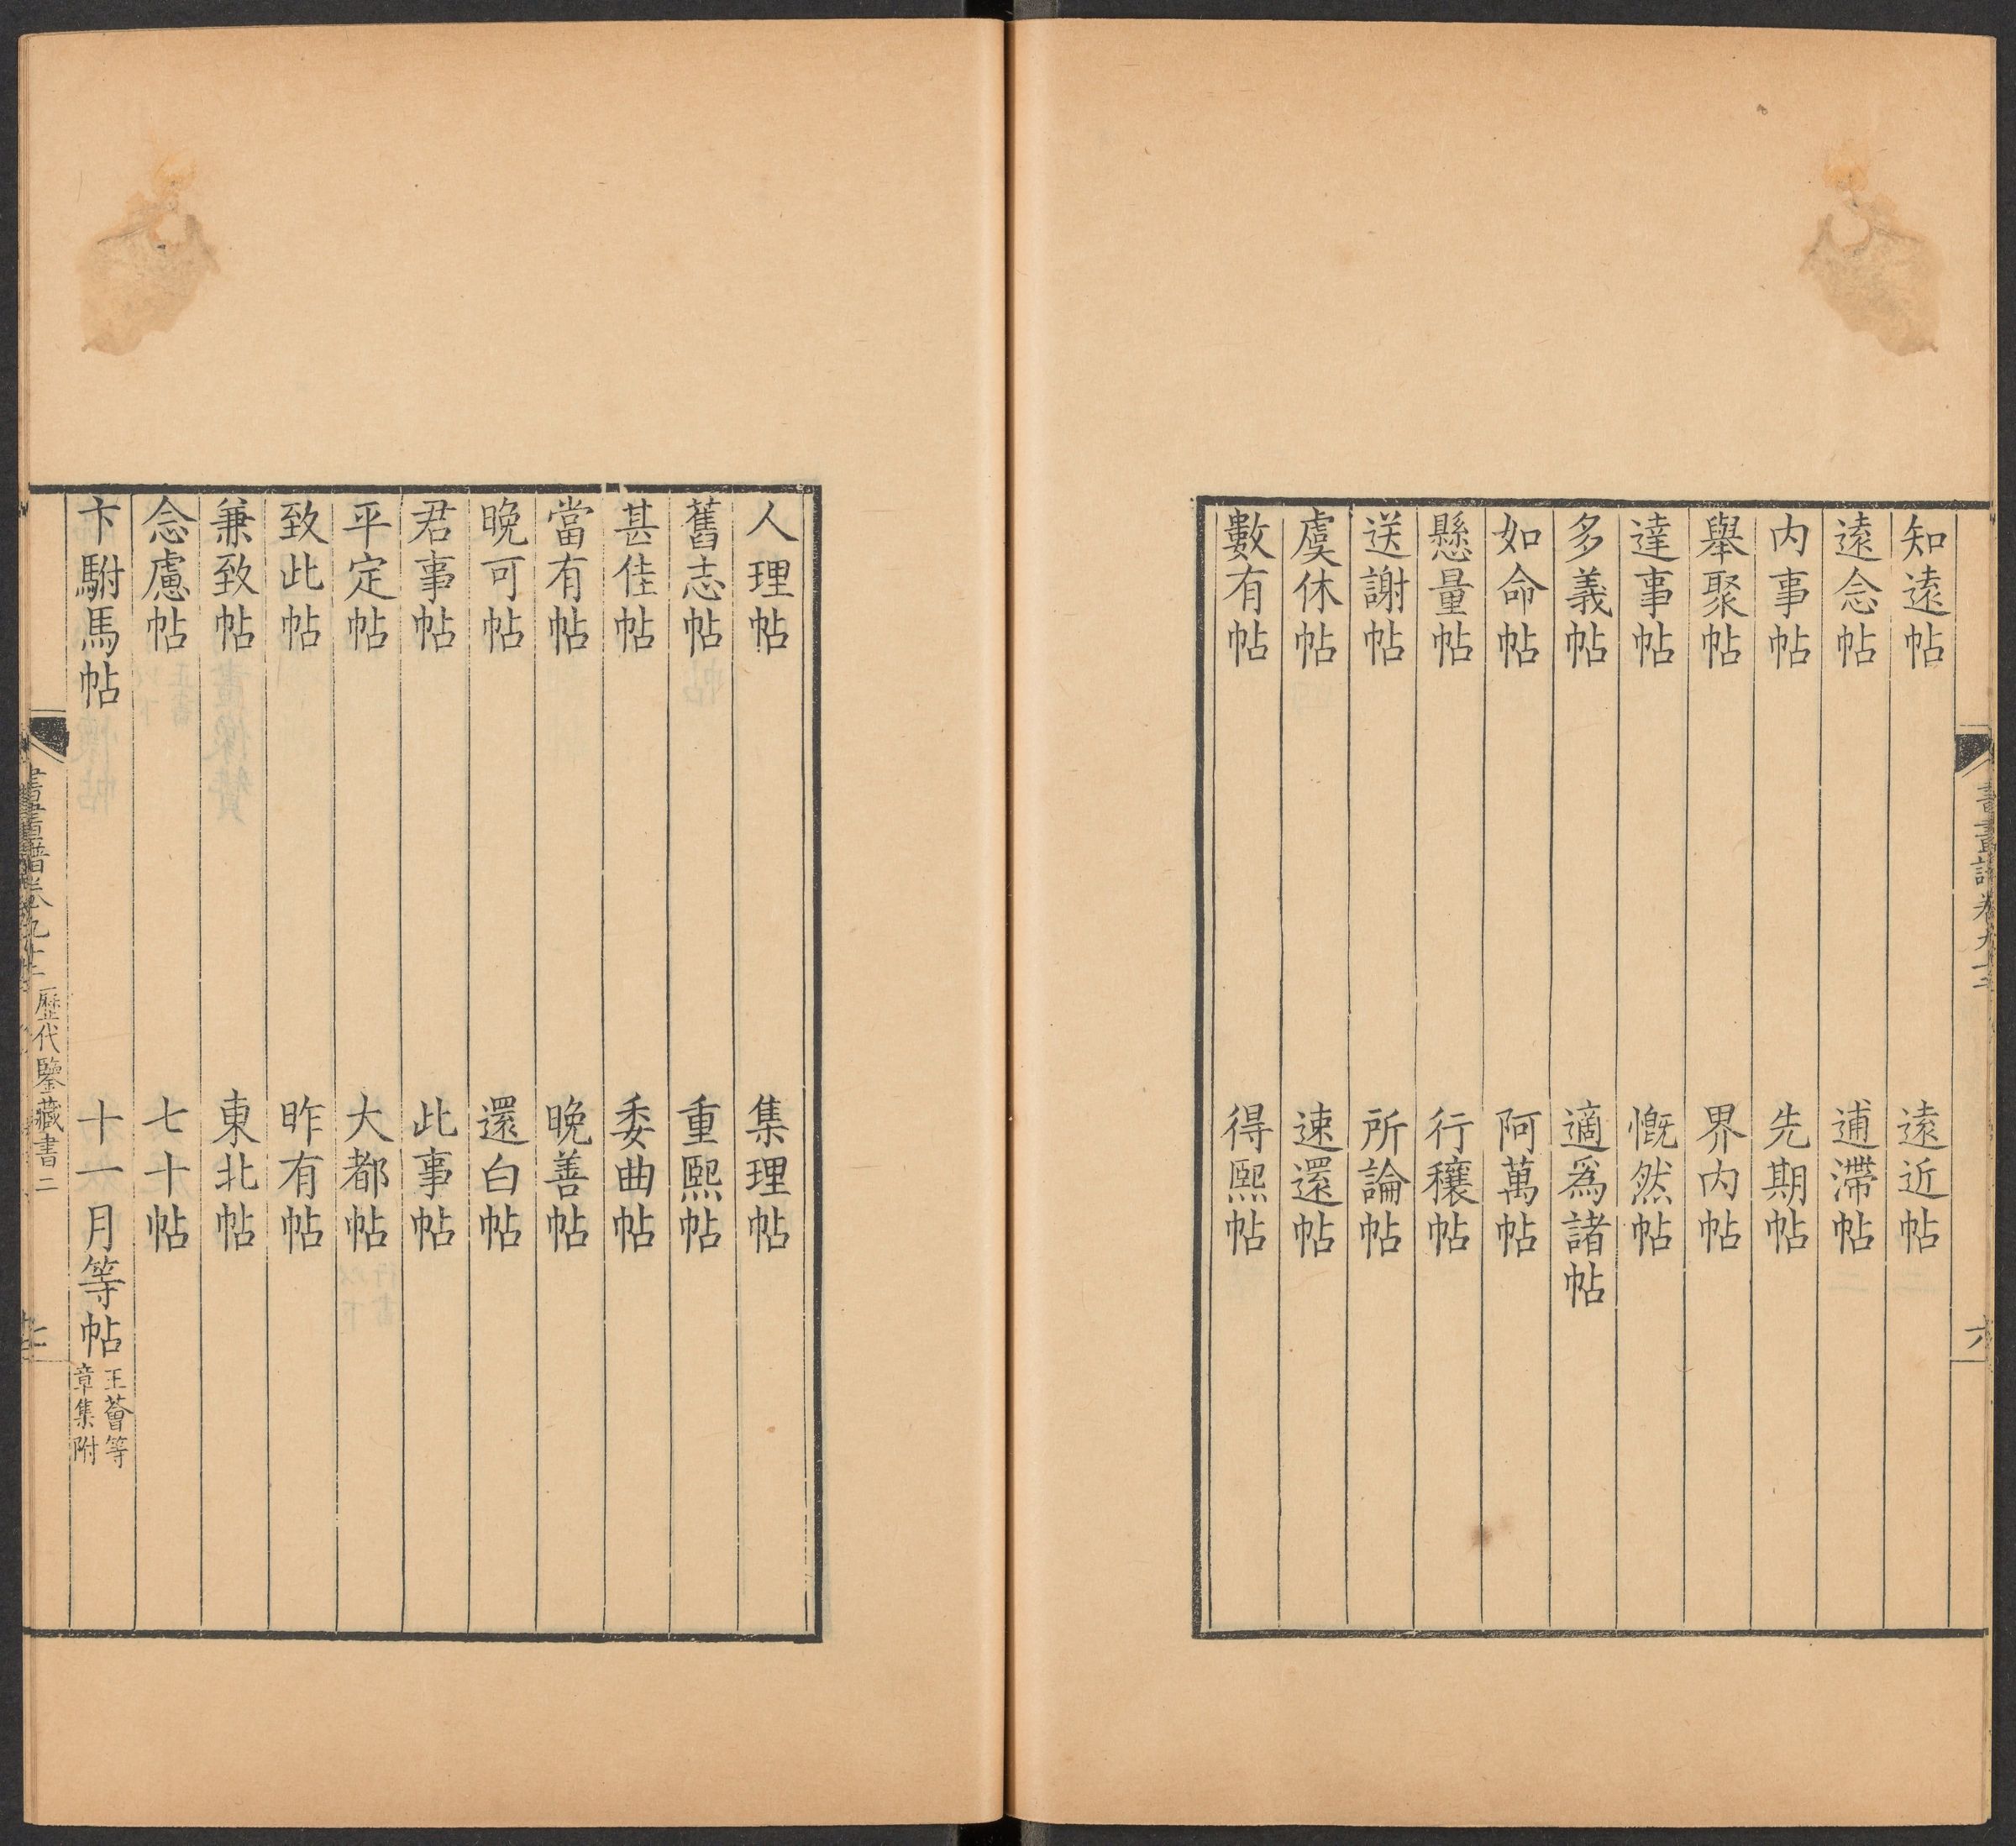 知遠帖 遠近帖
遠念帖 逋滯帖
内事帖 先期帖
舉聚帖 界内帖
達事帖 慨然帖
多義帖 適爲諸帖
如命帖 阿萬帖
懸量帖 行穰帖
送謝帖 所論帖
虞休帖 速還帖
數有帖 得熙帖
人理帖 集理帖
舊志帖 重熙帖
甚佳帖 委曲帖
當有帖 晩善帖
晩可帖 還白帖
君事帖 此事帖
平定帖 大都帖
致此帖 昨有帖
兼致帖 東北帖
念慮帖 七十帖
卞駙馬帖 十一月等帖 王薈等章集附
書畫譜卷九十二 歷代鑒藏書二 七
書畫譜卷九十二 六